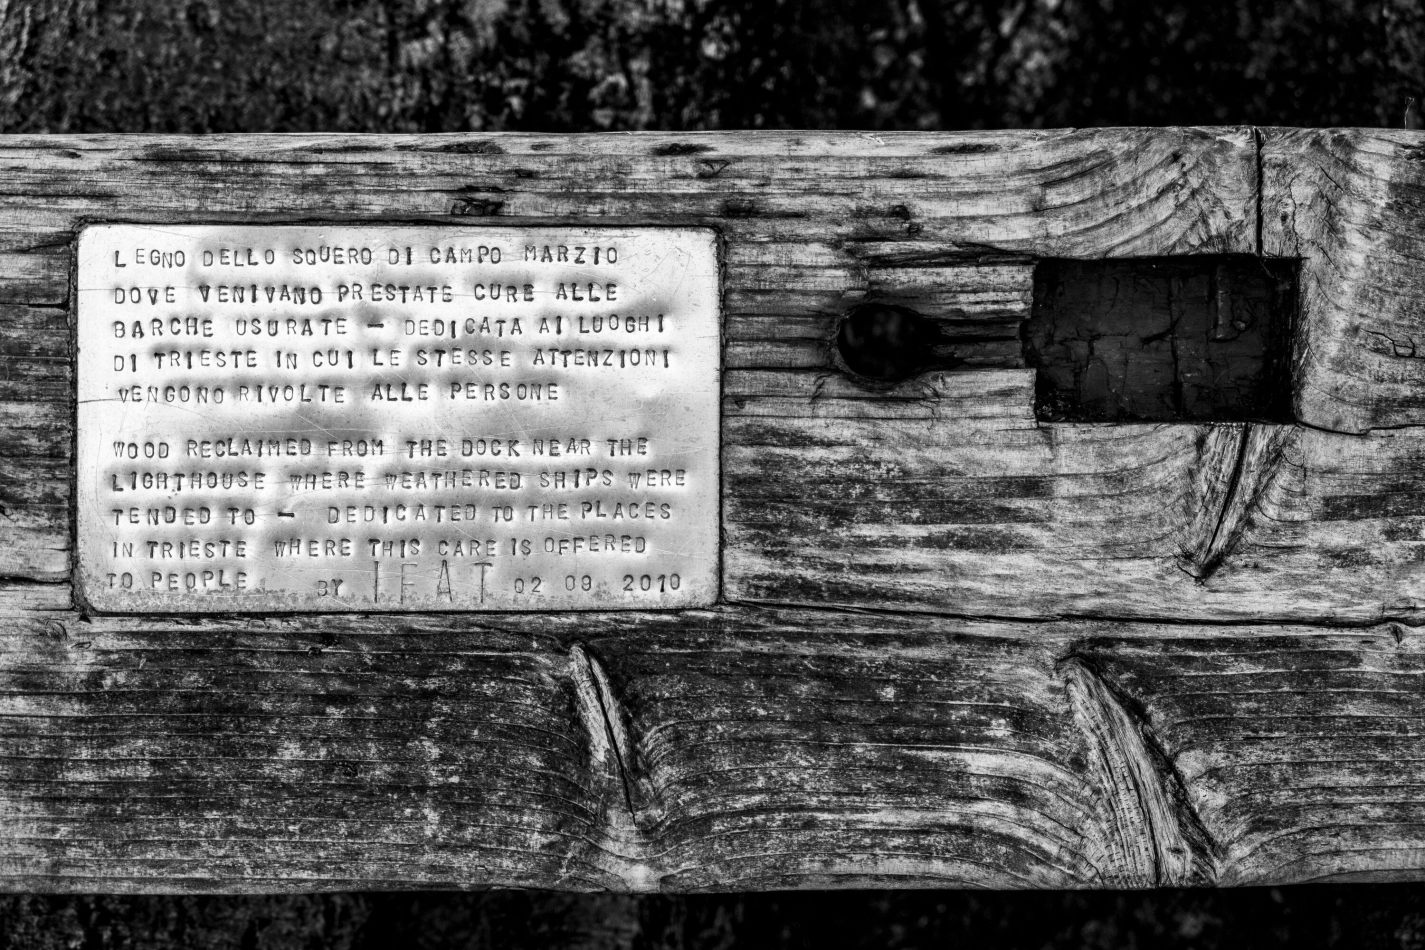 LEGNO DELLO SQUERO DI CAMPO MARZIO
DOVE VENIVANO PRESTATE CURE ALLE
BARCHE USURATE - DEDICATA AI LUOGHI
DI TRIESTE IN CUI LE STESSE ATTENZIONI
VENGONO RIVOLTE ALLE PERSONE
WOOD RECLAIMED FROM THE DOCK NEAR THE
LIGHTHOUSE WHERE WEATHERED SHIPS WERE
TENDED TO - DEDICATED TO THE PLACES
IN TRIESTE WHERE THIS CARE IS OFFERED
TO PEOPLE BY IFAT 02 09 2010